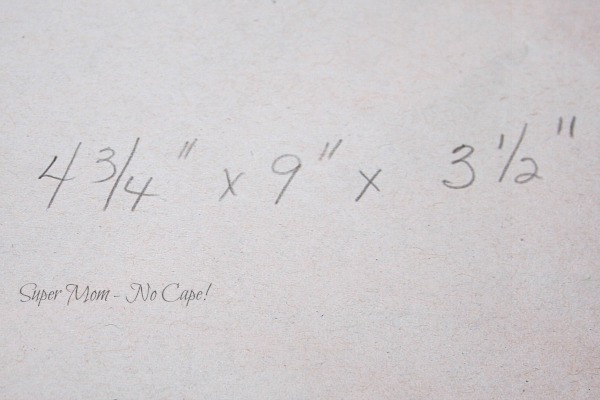 4 3/4" x 9" x 3 1/2"
Super Mom - No Cape!